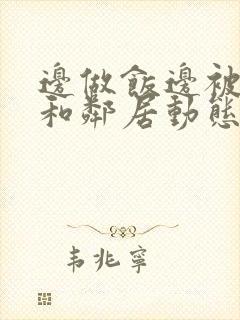 邊做飯邊被
和鄰居動態
韦兆寧